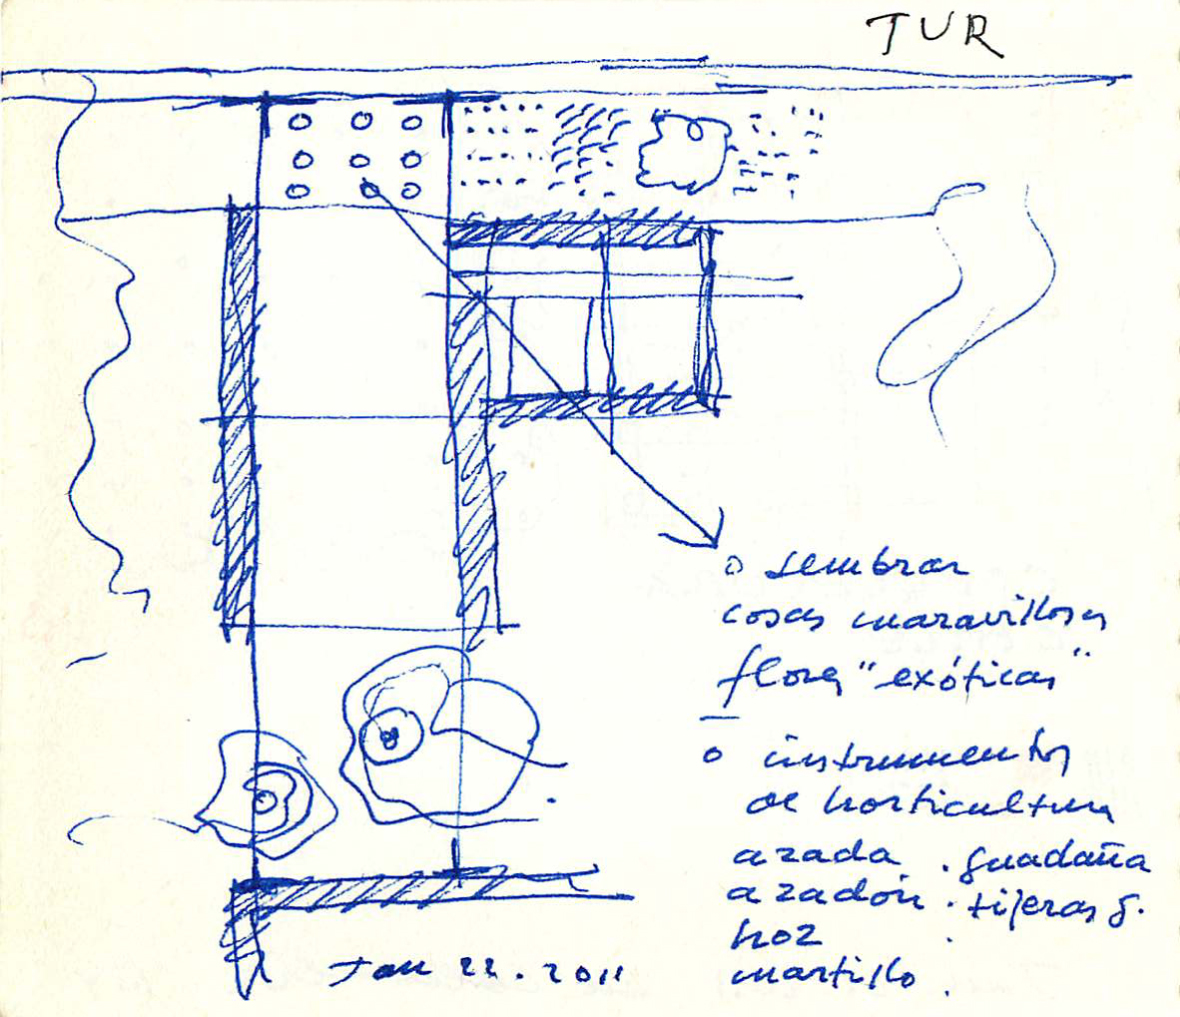 TUR
o sembrar
cosas maravillosas
flores "exóticas"
o instrumentos
de horticultura
azada . guadaña
azadón . tijeras g.
hoz
martillo .
Jan 22. 2011